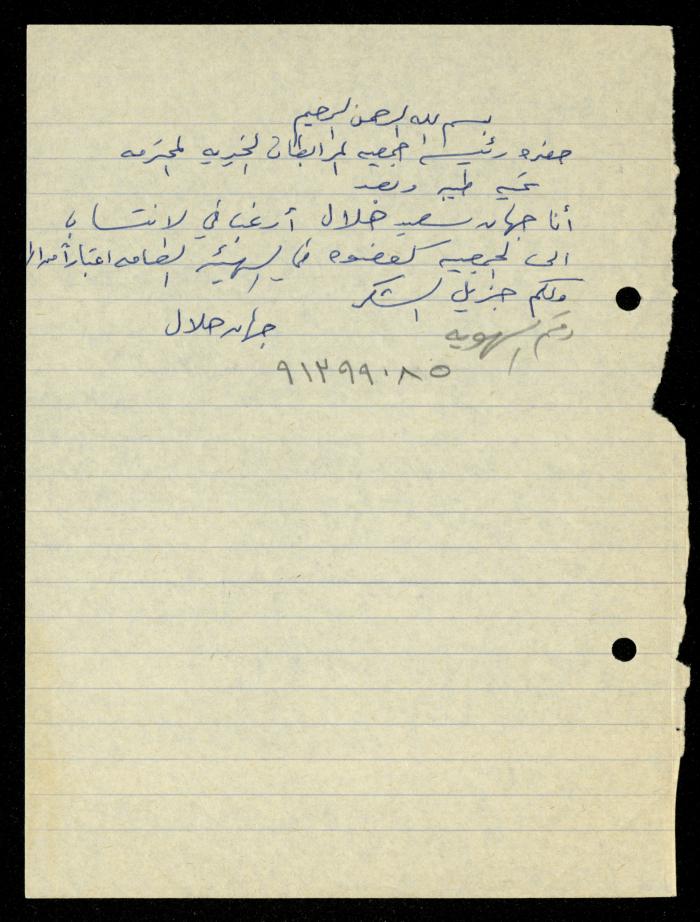 بسم الله الرحمن الرحيم
حضرة رئيسة جمعيه المرابطات الخيريه المحترمه
تحيه طيبه وبعد
أنا جهاد سعيد هلال أرغب في لانتساب
الى الجمعيه كعضوه في الهيئه العامه اعتباراً من
ولكم جزيل الشكر
جهاد هلال
رقم الهويه
٩١٢٩٩٠٨٥